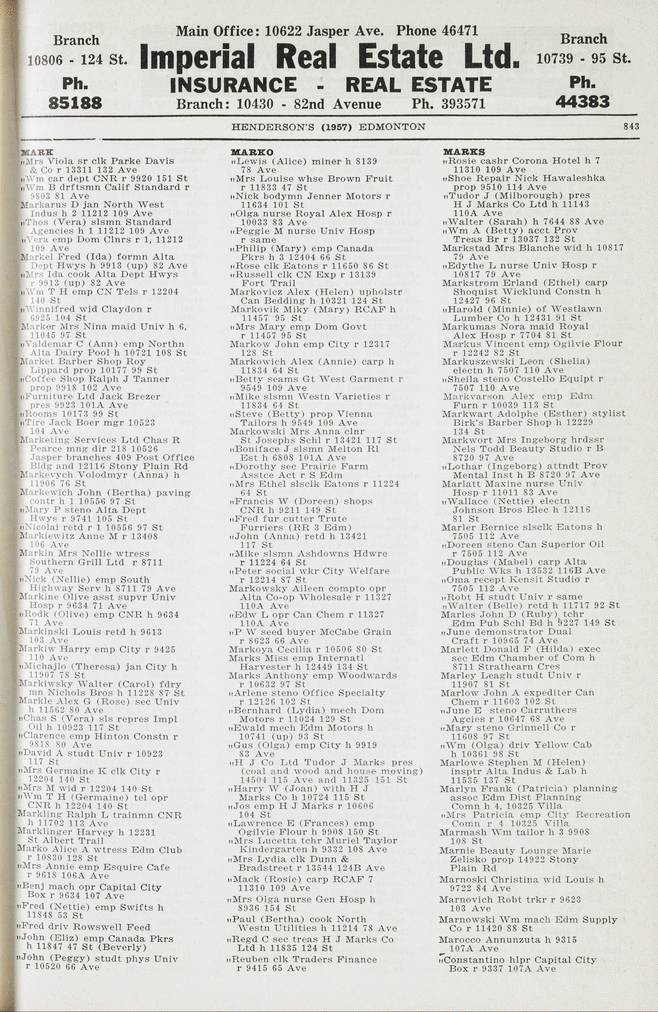 Branch
10806 - 124 St.
Ph.
85188
Main Office: 10622 Jasper Ave. Phone 46471
Imperial Real Estate Ltd.
INSURANCE - REAL ESTATE
Branch: 10430 - 82nd Avenue Ph. 393571
Branch
10739 - 95 St.
Ph.
44383
HENDERSON'S (1957) EDMONTON 843
MARK
„Mrs Viola sr clk Parke Davis
& Co r 13311 132 Ave
„Wm car dept CNR r 9920 151 St
„Wm B drftsmn Calif Standard r
9803 81 Ave
Markarus D jan North West
Indus h 2 11212 109 Ave
„Thos (Vera) slsmn Standard
Agencies h 1 11212 109 Ave
„Vera emp Dom Clnrs r 1, 11212
109 Ave
Markel Fred (Ida) formn Alta
Dept Hwys h 9913 (up) 82 Ave
„Mrs Ida cook Alta Dept Hwys
r 9913 (up) 82 Ave
„Wm T H emp CN Tels r 12204
140 St
„Winnifred wid Claydon r
6925 104 St
Marker Mrs Nina maid Univ h 6,
11045 97 St
„Valdemar C (Ann) emp Northn
Alta Dairy Pool h 10721 108 St
Market Barber Shop Roy
Lippard prop 10177 99 St
„Coffee Shop Ralph J Tanner
prop 9918 102 Ave
„Furniture Ltd Jack Brezer
pres 9923 101A Ave
„Rooms 10173 99 St
„Tire Jack Boer mgr 10523
104 Ave
Marketing Services Ltd Chas R
Pearce mng dir 218 10526
Jasper branches 409 Post Office
Bldg and 12116 Stony Plain Rd
Markevych Volodmyr (Anna) h
11906 76 St
Markewich John (Bertha) paving
contr h 1 10556 97 St
„Mary P steno Alta Dept
Hwys r 9741 105 St
„Nicolai retd r 1 10556 97 St
Markiewitz Anne M r 13408
106 Ave
Markin Mrs Nellie wtress
Southern Grill Ltd r 8711
79 Ave
„Nick (Nellie) emp South
Highway Serv h 8711 79 Ave
Markine Olive asst supvr Univ
Hosp r 9634 71 Ave
„Rodk (Olive) emp CNR h 9634
71 Ave
Markinski Louis retd h 9613
103 Ave
Markiw Harry emp City r 9425
110 Ave
„Michajlo (Theresa) jan City h
11907 78 St
Markiwsky Walter (Carol) fdry
mn Nichols Bros h 11228 87 St
Markle Alex G (Rose) sec Univ
h 11562 80 Ave
„Chas S (Vera) sls repres Impl
Oil h 10923 117 St
„Clarence emp Hinton Constn r
9818 80 Ave
„David A studt Univ r 10923
117 St
„Mrs Germaine K clk City r
12204 140 St
„Mrs M wid r 12204 140 St
„Wm T H (Germaine) tel opr
CNR h 12204 140 St
Markling Ralph L trainmn CNR
h 11702 113 Ave
Marklinger Harvey h 12231
St Albert Trail
Marko Alice A wtress Edm Club
r 10830 128 St
„Mrs Annie emp Esquire Cafe
r 9618 106A Ave
„Benj mach opr Capital City
Box r 9634 107 Ave
„Fred (Nettie) emp Swifts h
11848 53 St
„Fred driv Rowswell Feed
„John (Eliz) emp Canada Pkrs
h 11847 47 St (Beverly)
„John (Peggy) studt phys Univ
r 10520 66 Ave
MARKO
„Lewis (Alice) miner h 8139
78 Ave
„Mrs Louise whse Brown Fruit
r 11833 47 St
„Nick bodymn Jenner Motors r
11634 101 St
„Olga nurse Royal Alex Hosp r
10033 83 Ave
„Peggie M nurse Univ Hosp
r same
„Philip (Mary) emp Canada
Pkrs h 3 12404 66 St
„Rose clk Eatons r 11650 86 St
„Russell clk CN Exp r 13139
Fort Trail
Markovicz Alex (Helen) upholstr
Can Bedding h 10321 124 St
Markovik Miky (Mary) RCAF h
11457 95 St
„Mrs Mary emp Dom Govt
r 11457 95 St
Markow John emp City r 12317
128 St
Markowich Alex (Annie) carp h
11834 64 St
„Betty seams Gt West Garment r
9549 109 Ave
„Mike slsmn Westn Varieties r
11834 64 St
„Steve (Betty) prop Vienna
Tailors h 9549 109 Ave
Markowski Mrs Anna clnr
St Josephs Schl r 13421 117 St
„Boniface J slsmn Melton Rl
Est h 6808 101A Ave
„Dorothy sec Prairie Farm
Asstce Act r S Edm
„Mrs Ethel slsclk Eatons r 11224
64 St
„Francis W (Doreen) shops
CNR h 9211 149 St
„Fred fur cutter Trute
Furriers (RR 3 Edm)
„John (Anna) retd h 13421
117 St
„Mike slsmn Ashdowns Hdwre
r 11224 64 St
„Peter social wkr City Welfare
r 12214 87 St
Markowsky Aileen compto opr
Alta Co-op Wholesale r 11327
110A Ave
„Edw L opr Can Chem r 11327
110A Ave
„P W seed buyer McCabe Grain
r 8623 66 Ave
Markoya Cecilia r 10506 80 St
Marks Miss emp Internatl
Harvester h 12449 134 St
Marks Anthony emp Woodwards
r 10632 97 St
„Arlene steno Office Specialty
r 12126 102 St
„Bernhard (Lydia) mech Dom
Motors r 11024 129 St
„Ewald mech Edm Motors h
10741 (up) 93 St
„Gus (Olga) emp City h 9919
83 Ave
„H J Co Ltd Tudor J Marks pres
(coal and wood and house moving)
14504 115 Ave and 11325 151 St
„Harry W (Joan) with H J
Marks Co h 10724 115 St
„Jos emp H J Marks r 10606
104 St
„Lawrence E (Frances) emp
Ogilvie Flour h 9908 150 St
„Mrs Lucetta tchr Muriel Taylor
Kindergarten h 9332 108 Ave
„Mrs Lydia clk Dunn &
Bradstreet r 13544 124B Ave
„Mack (Rosie) carp RCAF 7
11310 109 Ave
„Mrs Olga nurse Gen Hosp h
8936 154 St
„Paul (Bertha) cook North
Westn Utilities h 11214 78 Ave
„Regd C sec treas H J Marks Co
Ltd h 11835 124 St
„Reuben clk Traders Finance
r 9415 65 Ave
MARKS
„Rosie cashr Corona Hotel h 7
11310 109 Ave
„Shoe Repair Nick Hawaleshka
prop 9510 114 Ave
„Tudor J (Milborough) pres
H J Marks Co Ltd h 11143
110A Ave
„Walter (Sarah) h 7644 88 Ave
„Wm A (Betty) acct Prov
Treas Br r 13037 132 St
Markstad Mrs Blanche wid h 10817
79 Ave
„Edythe L nurse Univ Hosp r
10817 79 Ave
Markstrom Erland (Ethel) carp
Shoquist Wicklund Constn h
12427 96 St
„Harold (Minnie) of Westlawn
Lumber Co h 12431 91 St
Markumas Nora maid Royal
Alex Hosp r 7704 81 St
Markus Vincent emp Ogilvie Flour
r 12242 82 St
Markuszewski Leon (Shelia)
electn h 7507 110 Ave
„Sheila steno Costello Equipt r
7507 110 Ave
Markvarson Alex emp Edm
Furn r 10039 113 St
Markwart Adolphe (Esther) stylist
Birk's Barber Shop h 12229
134 St
Markwort Mrs Ingeborg hrdssr
Nels Todd Beauty Studio r B
8720 97 Ave
„Lothar (Ingeborg) attndt Prov
Mental Inst h B 8720 97 Ave
Marlatt Maxine nurse Univ
Hosp r 11011 83 Ave
„Wallace (Nettie) electn
Johnson Bros Elec h 12116
81 St
Marler Bernice slsclk Eatons h
7505 112 Ave
„Doreen steno Can Superior Oil
r 7505 112 Ave
„Douglas (Mabel) carp Alta
Public Wks h 13532 116B Ave
„Oma recept Kensit Studio r
7505 112 Ave
„Robt H studt Univ r same
„Walter (Belle) retd h 11717 92 St
Marles John D (Ruby) tchr
Edm Pub Schl Bd h 9227 149 St
„June demonstrator Dual
Craft r 10965 74 Ave
Marlett Donald F (Hilda) exec
sec Edm Chamber of Com h
8711 Strathearn Cres
Marley Leagh studt Univ r
11907 81 St
Marlow John A expediter Can
Chem r 11603 102 St
„June E steno Carruthers
Agcies r 10647 68 Ave
„Mary steno Grinnell Co r
11608 97 St
„Wm (Olga) driv Yellow Cab
h 10361 98 St
Marlowe Stephen M (Helen)
insptr Alta Indus & Lab h
11535 137 St
Marlyn Frank (Patricia) planning
assoc Edm Dist Planning
Comn h 4, 10325 Villa
„Mrs Patricia emp City Recreation
Comn r 4 10325 Villa
Marmash Wm tailor h 3 9908
108 St
Marnie Beauty Lounge Marie
Zelisko prop 14922 Stony
Plain Rd
Marnoski Christina wid Louis h
9722 84 Ave
Marnovich Robt trkr r 9623
103 Ave
Marnowski Wm mach Edm Supply
Co r 11420 88 St
Marocco Annunzuta h 9315
107A Ave
„Constantino hlpr Capital City
Box r 9337 107A Ave